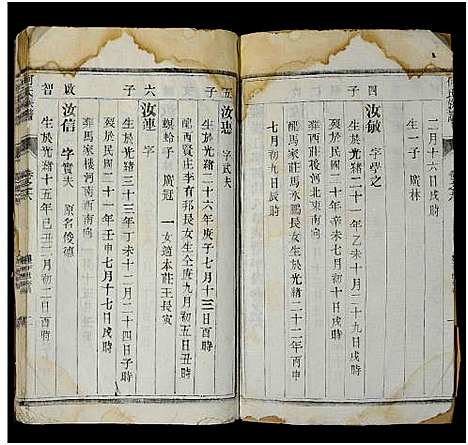 二月十六日戌時
生一子 廣林
四子 汝敏 字學之
生於光緒二十一年乙未十月二十九日戌時
歿於民國二十年辛未七月初十日戌時
葬西莊後河北東南向
配馬家莊馬永鵬長女生於光緒二十二年丙申
七月初九日辰時
五子 汝惠 字武夫
生於光緒二十六年庚子七月十三日酉時
配西賢庄李有邦長女生全庚九月初五日丑時
螟蛉子 廣冠 一女適本莊王長寅
六子 汝蓮 字
生於光緒三十三年丁未十二月二十四日子時
歿於民國二十一年壬申七月十七日戌時
葬馬家樓河南西南向
啟智 汝信 字實夫 原名俊德
生於光緒十五年己丑二月初二日酉時